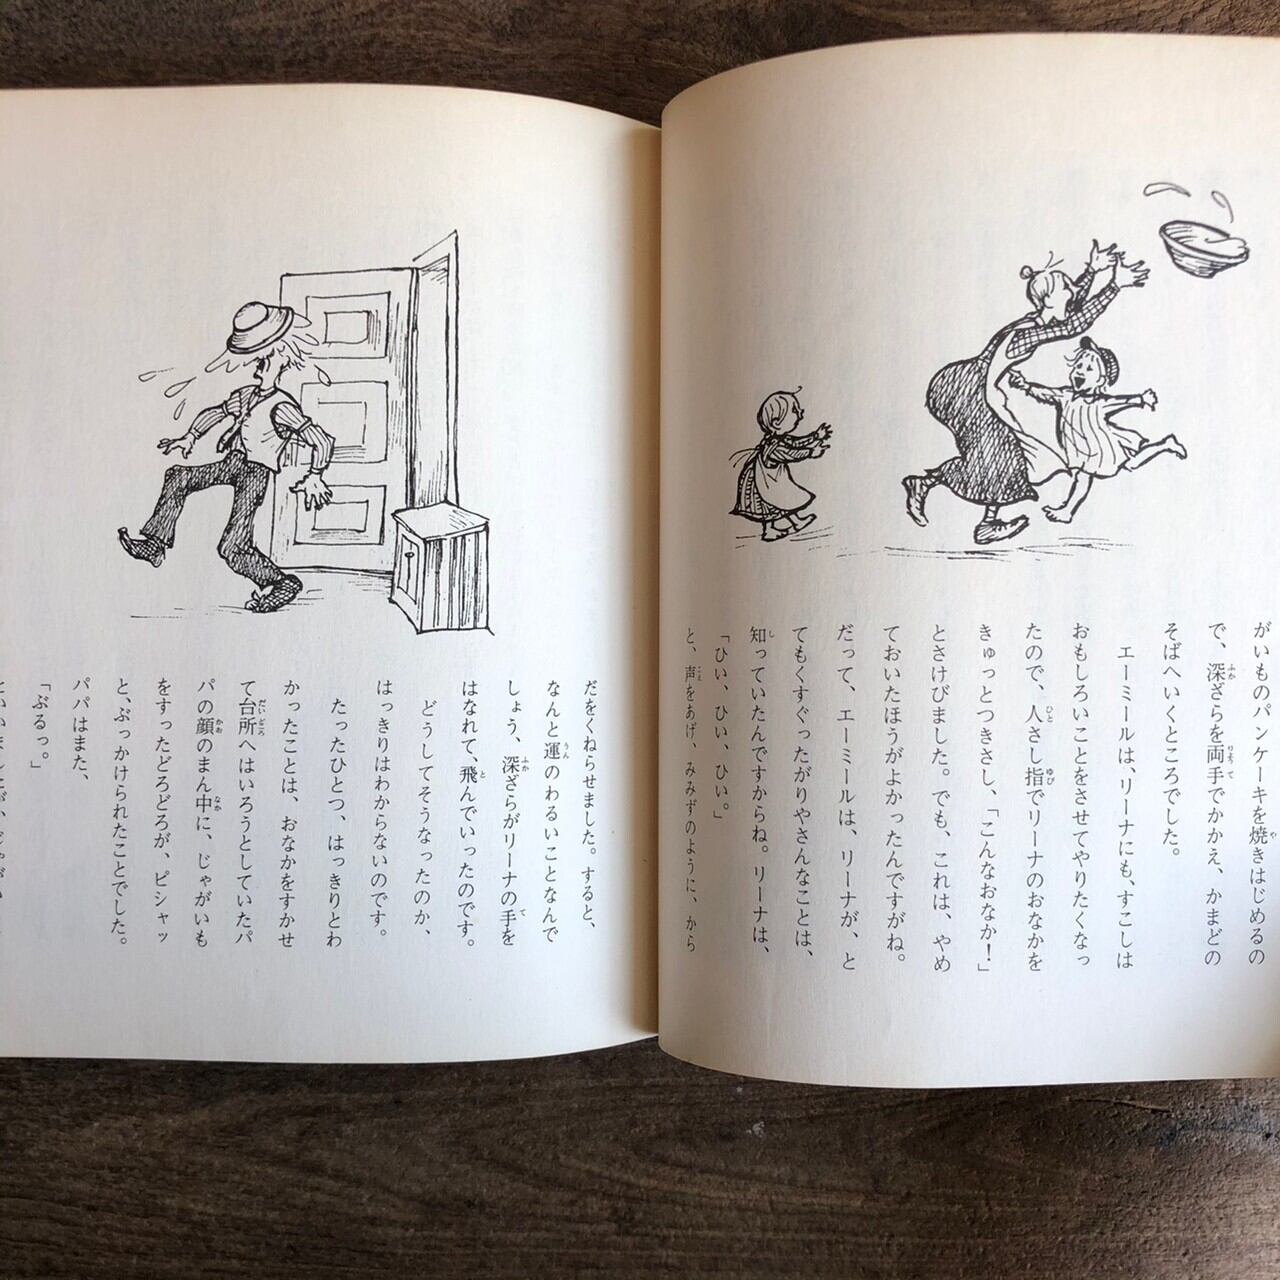 がいものパンケーキを焼きはじめるの
で、深ざらを両手でかかえ、かまどの
そばへいくところでした。
エーミールは、リーナにも、すこしは
おもしろいことをさせてやりたくなっ
たので、人さし指でリーナのおなかを
きゅっとつきさし、「こんなおなか！」
とさけびました。でも、これは、やめ
ておいたほうがよかったんですがね。
だって、エーミールは、リーナが、と
てもくすぐったがりやさんなことは、
知っていたんですからね。リーナは、
「ひい、ひい、ひい。」
と、声をあげ、みみずのように、から
だをくねらせました。すると、
なんと運のわるいことなんで
しょう、深ざらがリーナの手を
はなれて、飛んでいったのです。
どうしてそうなったのか、
はっきりはわからないのです。
たったひとつ、はっきりとわ
かったことは、おなかをすかせ
て台所へはいろうとしていたパ
パの顔のまん中に、じゃがいも
をすったどろどろが、ピシャッ
と、ぶっかけられたことでした。
パパはまた、
「ぶるっ。」